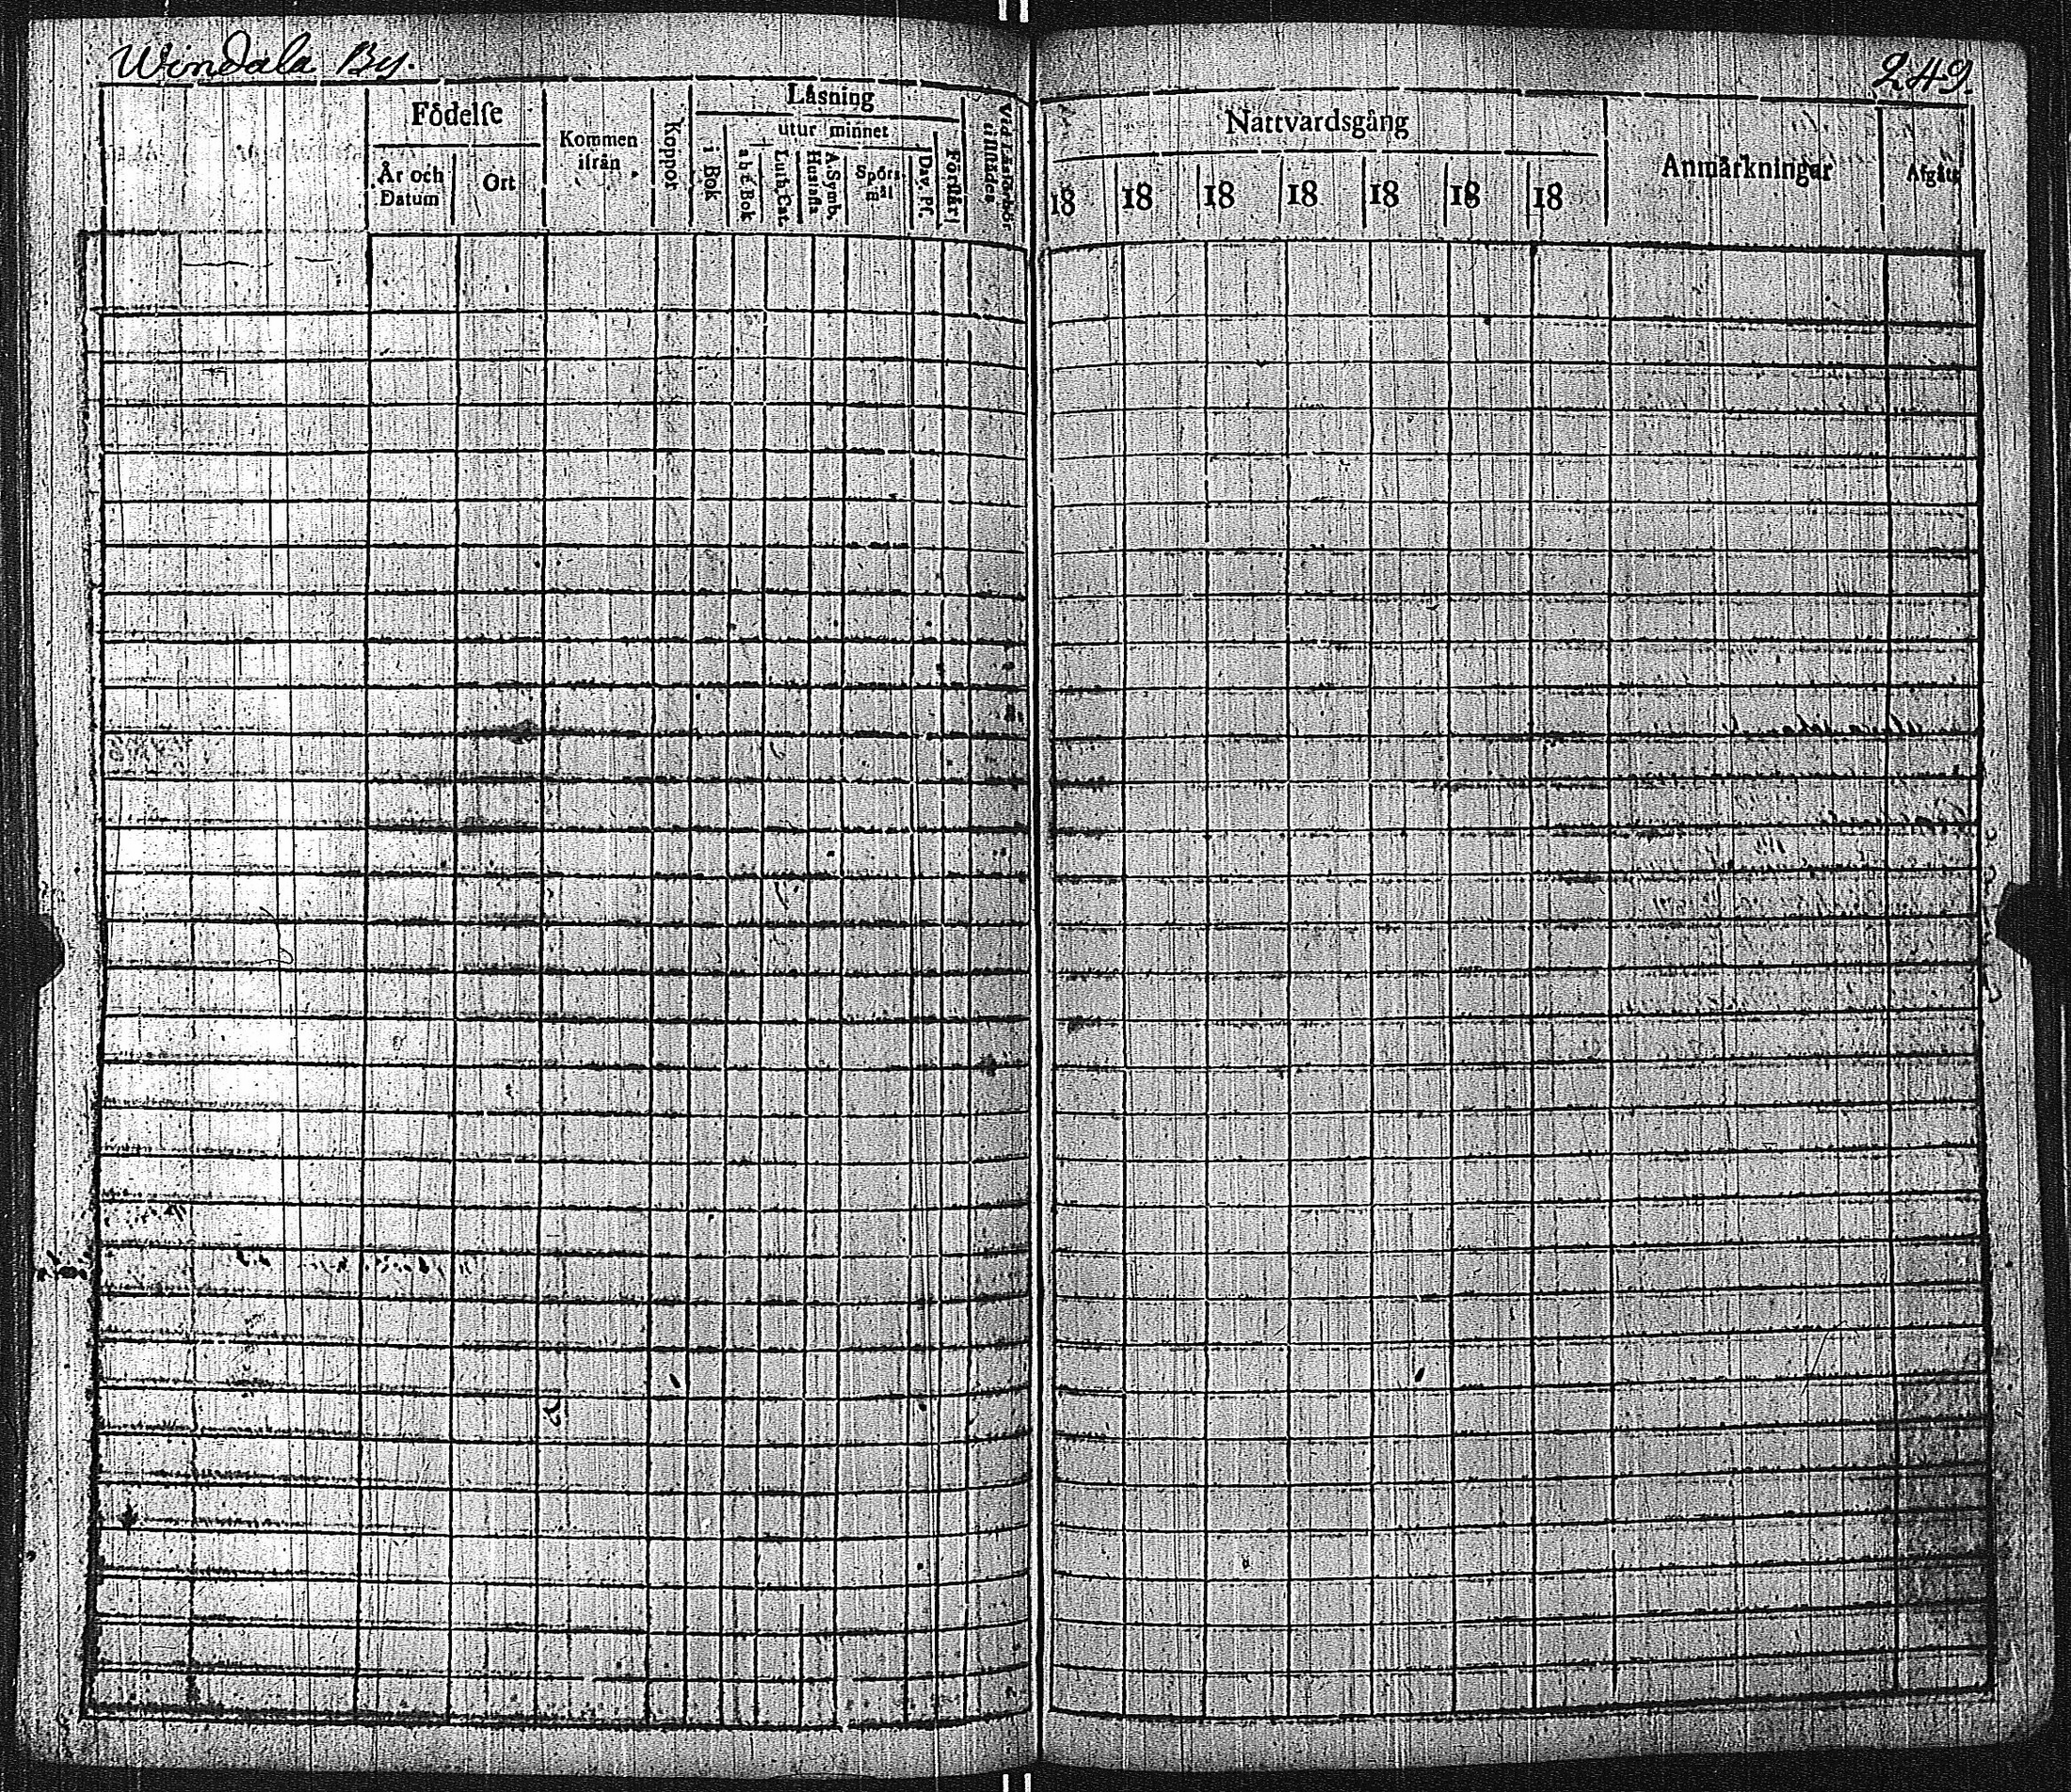 Windala By.
249.
Födelse
År och Datum
Ort
Kommen ifrån
Koppor
Läsning
utur minnet
i Bok
abc Bok
Luth. Cat.
A. Symb. Hustafla
Spörsmål
Dav. Ps.
Förstår
Vid Läsförhör tillstädes
Nattvardsgång
18 18 18 18 18 18 18
Anmärkningar
Afgått